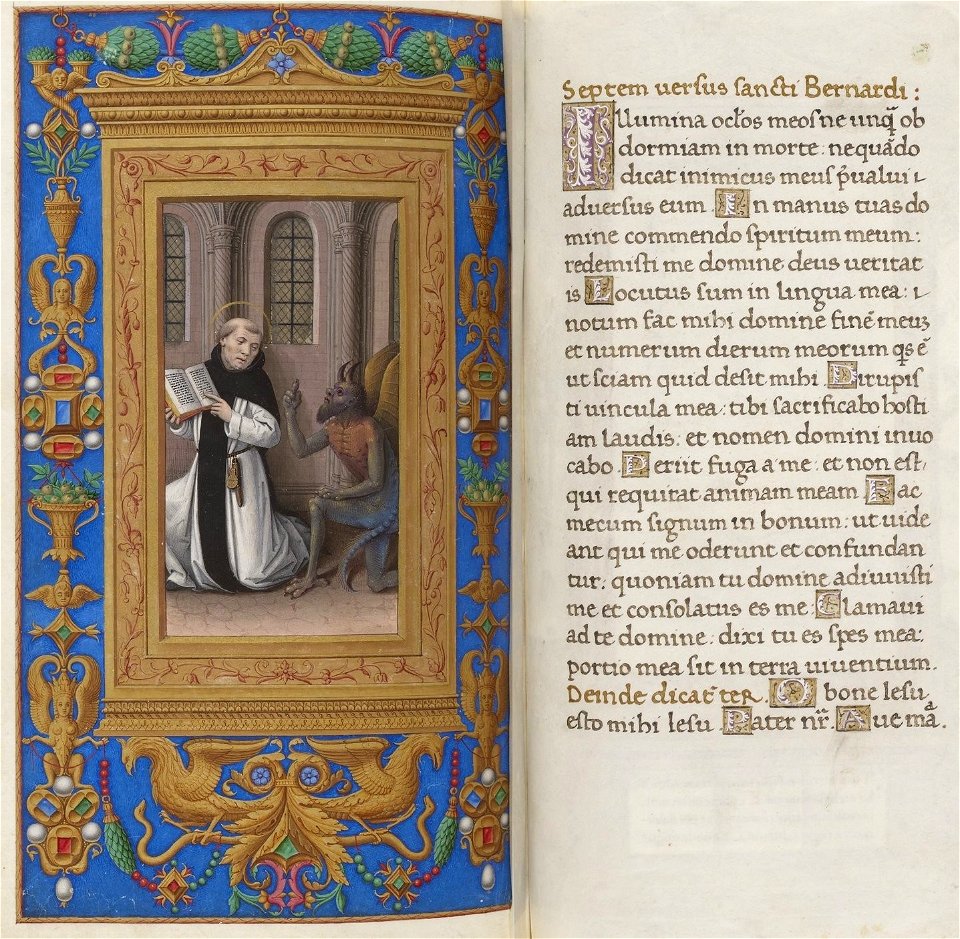 Septem uersus sancti Bernardi:
Illumina oc̄los meos ne unq̄ ob
dormiam in morte: nequādo
dicat inimicus meus p̄ualui ⁊
aduersus eum In manus tuas do
mine commendo spiritum meum:
redemisti me domine deus ueritat
is Locutus sum in lingua mea: ⁊
notum fac mihi domine finē meuꝫ
et numerum dierum meorum qs ē
ut sciam quid desit mihi Dirupis
ti uincula mea: tibi sacrificabo hosti
am laudis: et nomen domini inuo
cabo Periit fuga a me: et non est,
qui requitat animam meam Fac
mecum signum in bonum: ut uide
ant qui me oderunt et confundan
tur: quoniam tu domine adiuuisti
me et consolatus es me: Clamaui
ad te domine: dixi tu es spes mea:
portio mea sit in terra uiuentium.
Deinde dicat̄ ter. O bone Iesu
esto mihi Iesu Pater nr̄ Aue ma.